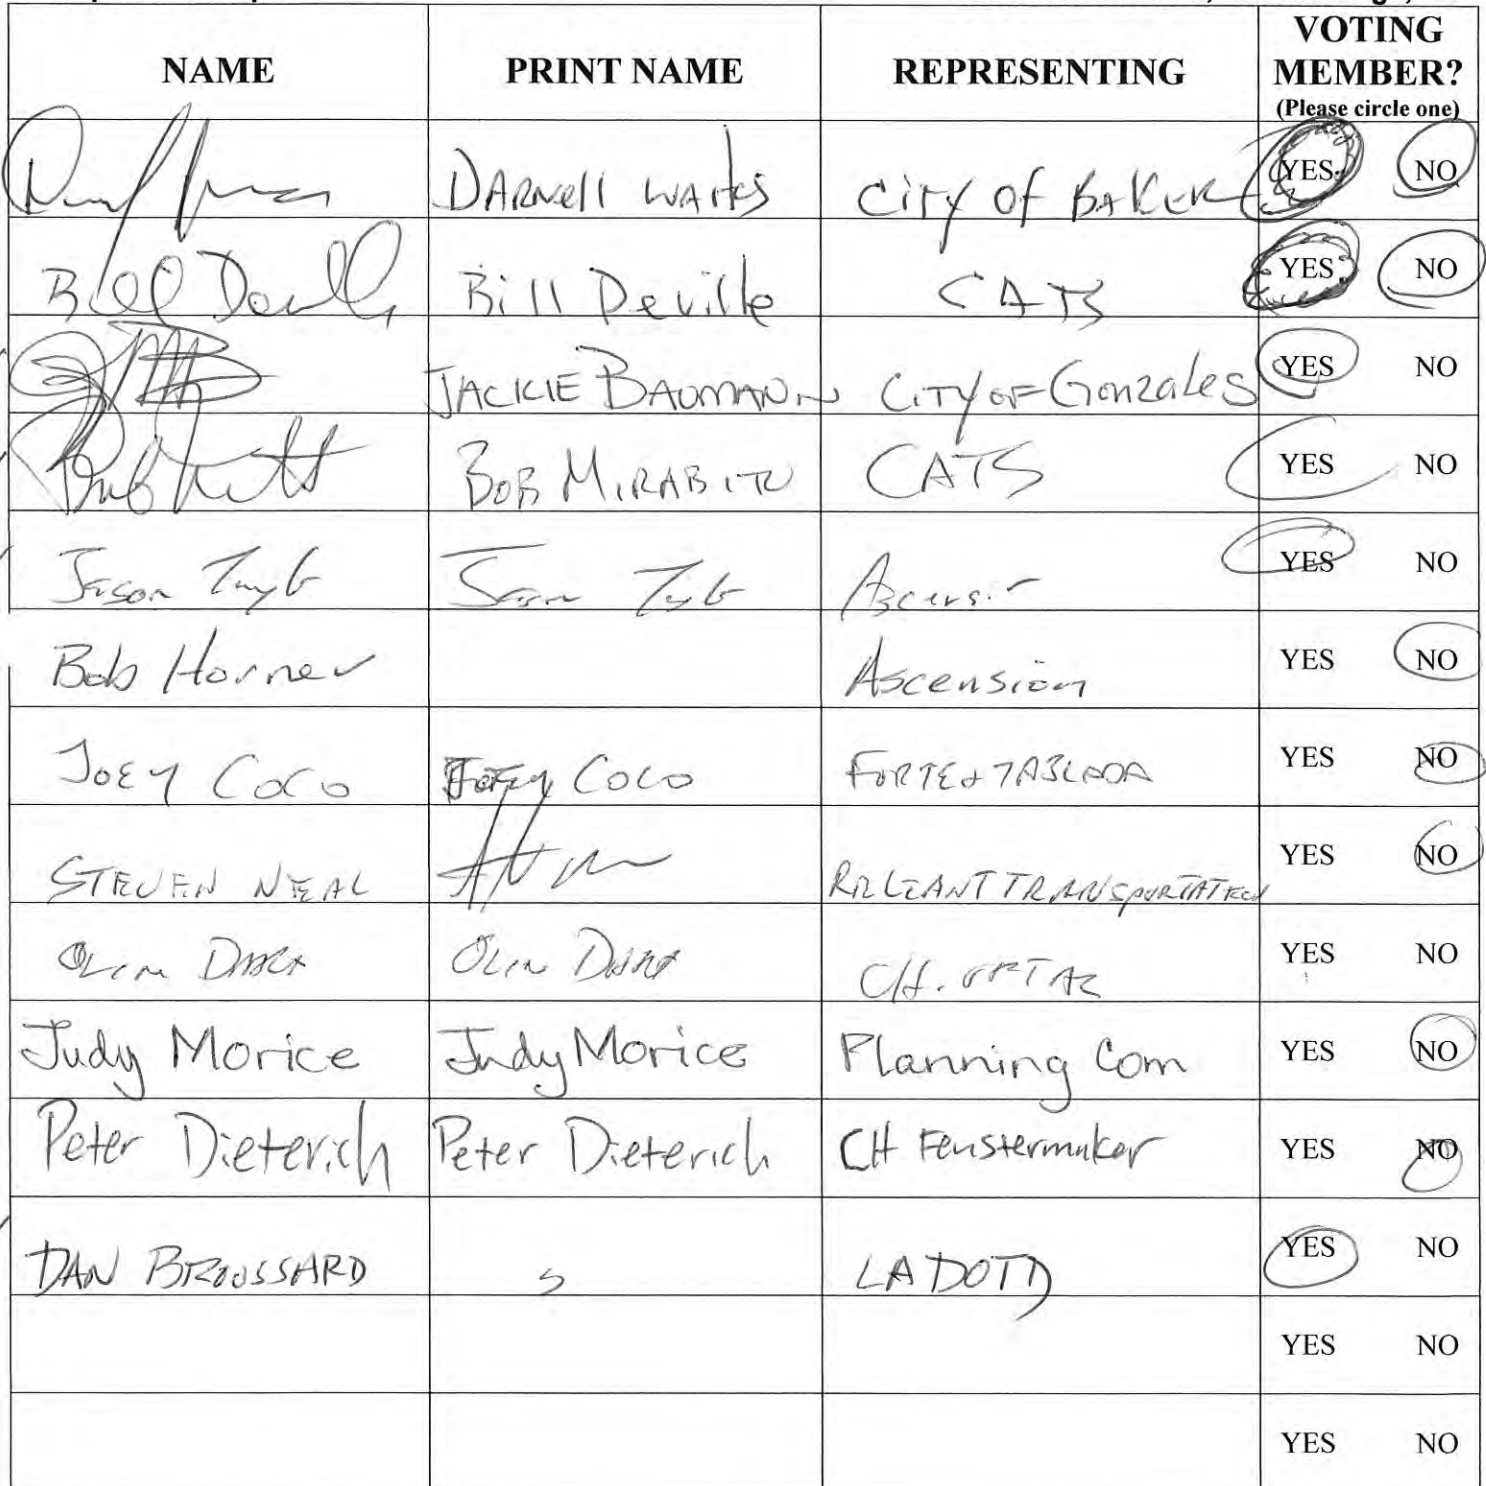 NAME PRINT NAME REPRESENTING VOTING MEMBER? (Please circle one)
DARNell WAites City of BAKER YES NO
Bill Deville Bill Deville CATS YES NO
JACKIE BAUMANN CITY OF Gonzales YES NO
BOB MIRABITO CATS YES NO
Jason Jason YES NO
Bob Horner Ascension YES NO
JOEY COCO JOEY COCO FORTE & TABLADA YES NO
STEVEN NEAL TRANSPORTATION YES NO
OLIN OLIN YES NO
Judy Morice Judy Morice Planning Com YES NO
Peter Dieterich Peter Dieterich CH Fenstermaker YES NO
DAN BROUSSARD LADOTD YES NO
YES NO
YES NO